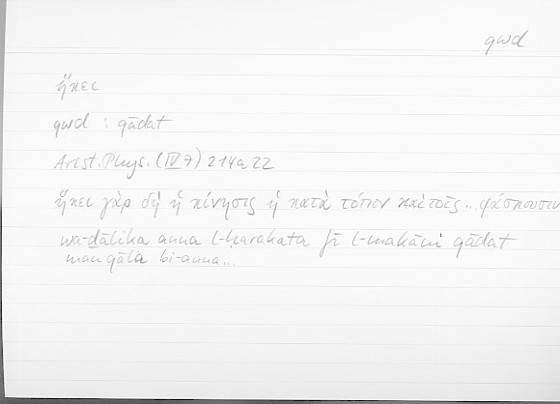 qwd
ἥκει
qwd : qādat
Arist. Phys. (IV 7) 214a22
ἥκει γὰρ δὴ ἡ κίνησις ἡ κατὰ τόπον καὶ τοῖς... φάσκουσιν
wa-ḏālika anna l-ḥarakata fī l-makāni qādat
man qāla bi-anna...